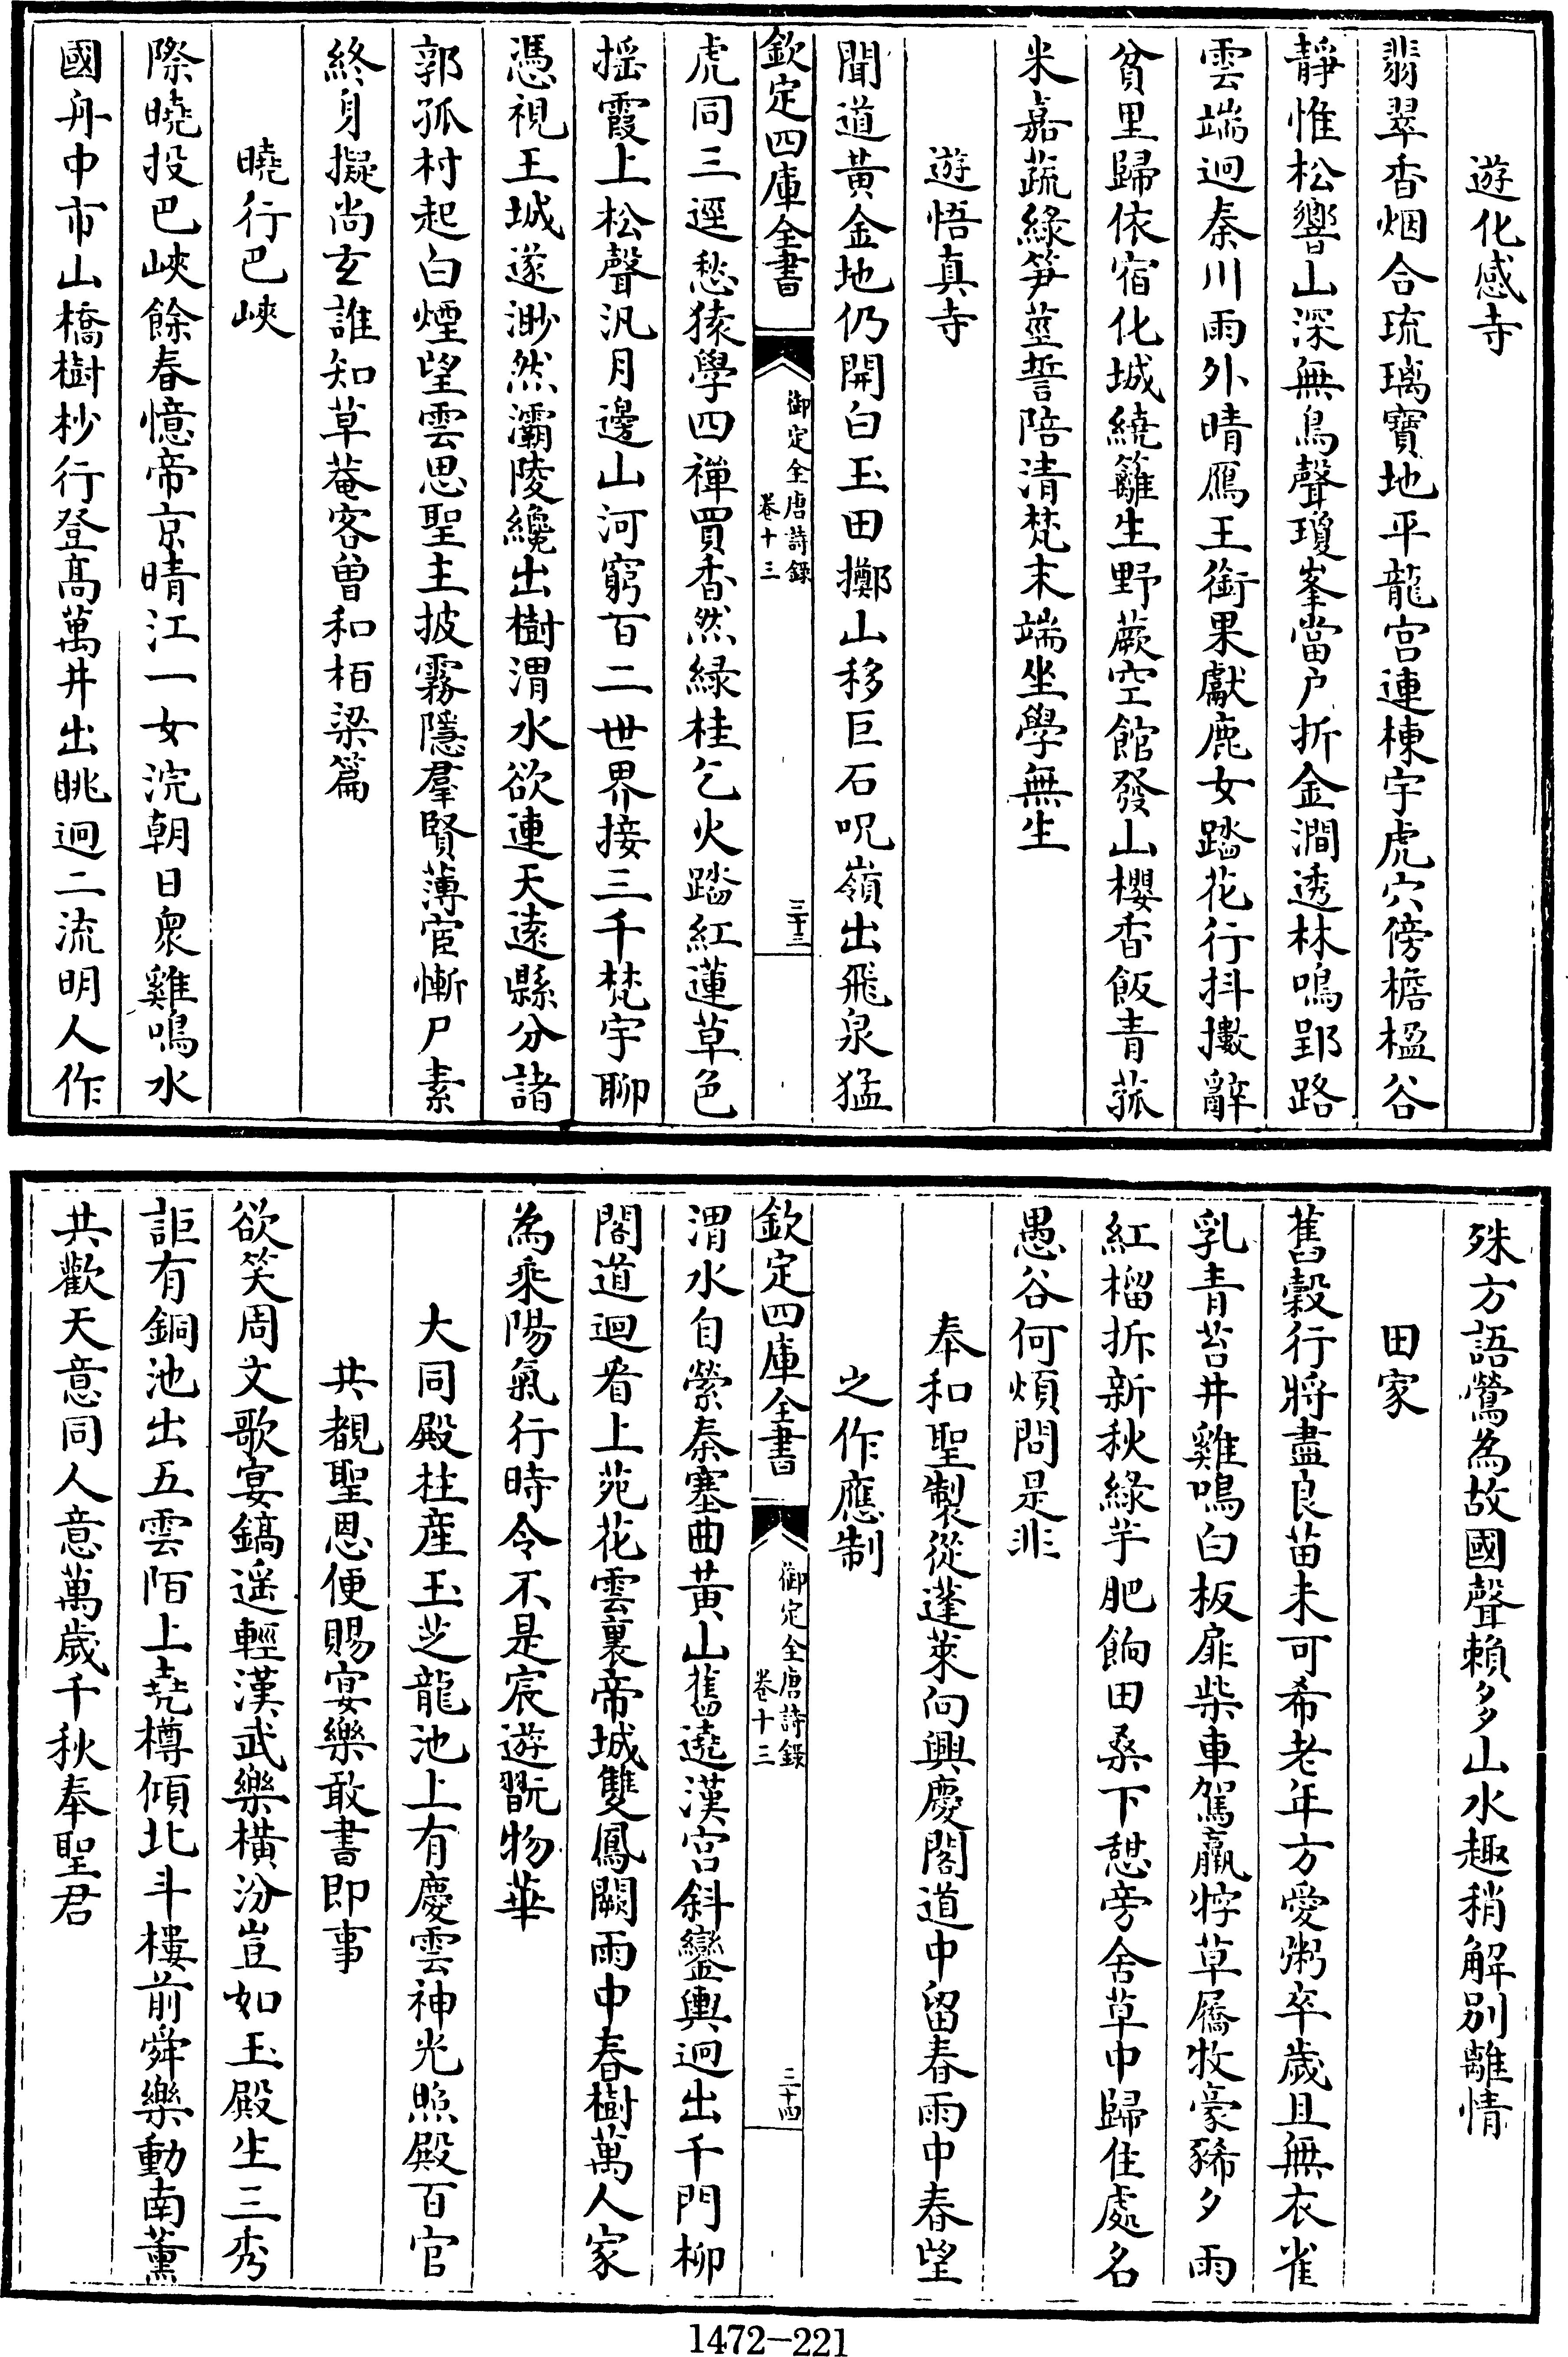 遊化感寺
翡翠香烟合琉璃寶地平龍宫連棟宇虎穴傍檐楹谷
靜惟松響山深無鳥聲瓊峯當户折金澗透林鳴郢路
雲端迥秦川雨外晴鴈王銜果獻鹿女踏花行抖擻辭
貧里歸依宿化城繞籬生野蕨空館發山櫻香飯青菰
米嘉蔬緑笋莖誓陪清梵末端坐學無生
遊悟真寺
聞道黄金地仍開白玉田擲山移巨石呪嶺出飛泉猛
欽定四庫全書
御定全唐詩録
卷十三
三十三
虎同三逕愁猿學四禪買香然緑桂乞火踏紅蓮草色
揺霞上松聲汎月邊山河窮百二世界接三千梵宇聊
憑視王城遂渺然灞陵纔出樹渭水欲連天遠縣分諸
郭孤村起白煙望雲思聖主披霧隱羣賢薄宦慚尸素
終身擬尚玄誰知草菴客曾和栢梁篇
曉行巴峽
際曉投巴峽餘春憶帝京晴江一女浣朝日衆雞鳴水
國舟中市山橋樹杪行登髙萬井出眺迥二流明人作
殊方語鶯為故國聲賴多山水趣稍解别離情
田家
舊穀行將盡良苗未可希老年方愛粥卒歲且無衣雀
乳青苔井雞鳴白板扉柴車駕羸牸草屩牧豪豨夕雨
紅榴拆新秋緑芋肥餉田桑下憇旁舍草中歸住處名
愚谷何煩問是非
奉和聖製從蓬萊向興慶閣道中留春雨中春望
之作應制
欽定四庫全書
御定全唐詩録
卷十三
三十四
渭水自縈秦塞曲黄山舊遶漢宫斜鑾輿迥出千門柳
閣道迴看上苑花雲裏帝城雙鳳闕雨中春樹萬人家
為乘陽氣行時令不是宸遊翫物華
大同殿柱産玉芝龍池上有慶雲神光照殿百官
共覩聖恩便賜宴樂敢書即事
欲笑周文歌宴鎬遥輕漢武樂横汾豈如玉殿生三秀
詎有銅池出五雲陌上堯樽傾北斗樓前舜樂動南薰
共歡天意同人意萬歲千秋奉聖君
1472-221